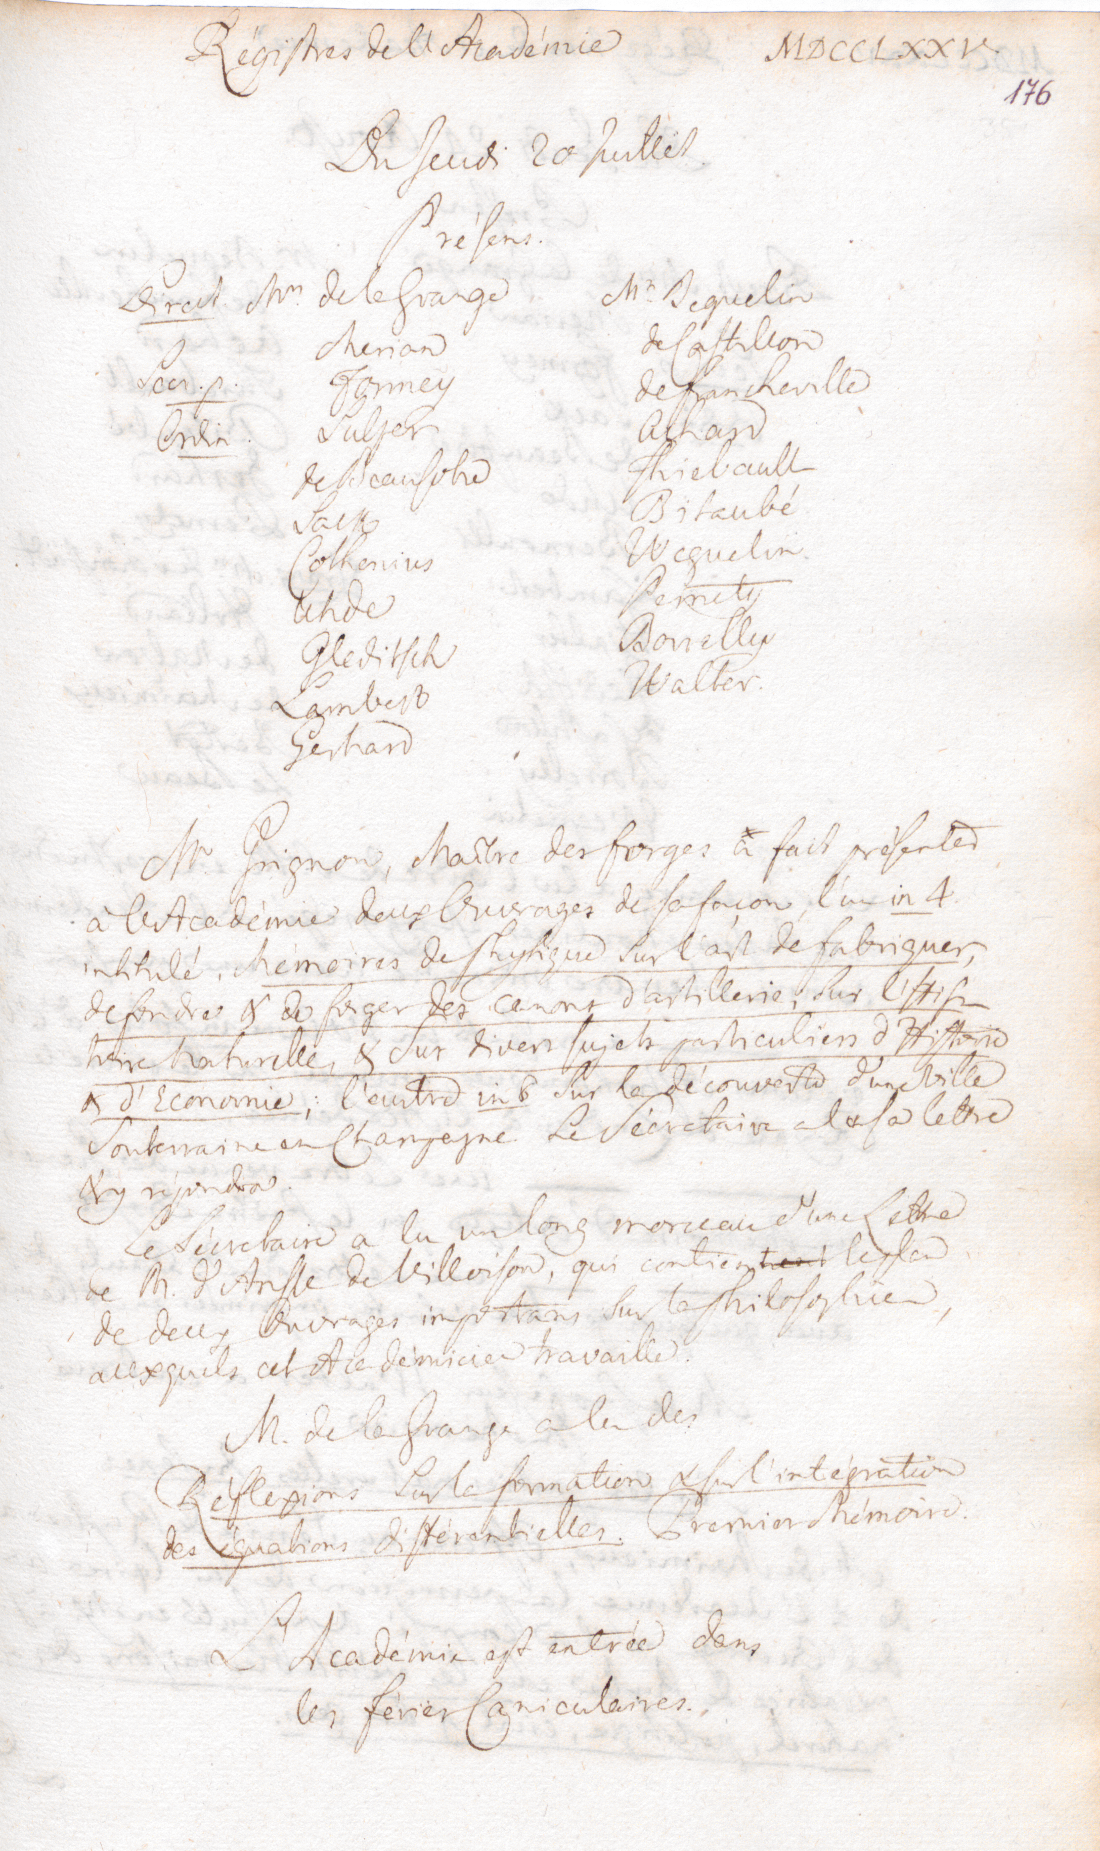 Régistres de l'Académie MDCCLXXV
176
Du Jeudi 20 Juillet
Présens.
Direct. Mrs. de la Grange Mrs. Beguelin
Merian de Castillon
Secr. p. Formey de Francheville
Ordin. Sulzer Achard
de Beausobre Thiebault
Sack Bitaubé
Cothenius Weguelin.
Uhde Pernety
Gleditsch Borrelly
Lambert Walter.
Gerhard
Mr. Grignon, Maître des forges a fait présenter
à l'Académie deux Ouvrages de sa façon, l'un in 4.
intitulé, Mémoires de Physique sur l'art de fabriquer,
de fondre & de forger des canons d'artillerie, sur l'His-
toire Naturelle, & sur divers sujets particuliers d'Histoire
& d'Economie; l'autre in 8 sur la découverte d'une Ville
Souterraine en Champagne. Le Sécretaire a lu sa lettre
& y répondra.
Le Sécretaire a lu un long morceau d'une Lettre
de M. d'Ansse de Villoison, qui contient le plan
de deux Ouvrages importans sur la Philosophie,
auxquels cet Académicien travaille.
M. de la Grange a lu des
Réflexions sur la formation & sur l'intégration
des équations différentielles. Premier Mémoire.
L'Académie est entrée dans
les féries Caniculaires.